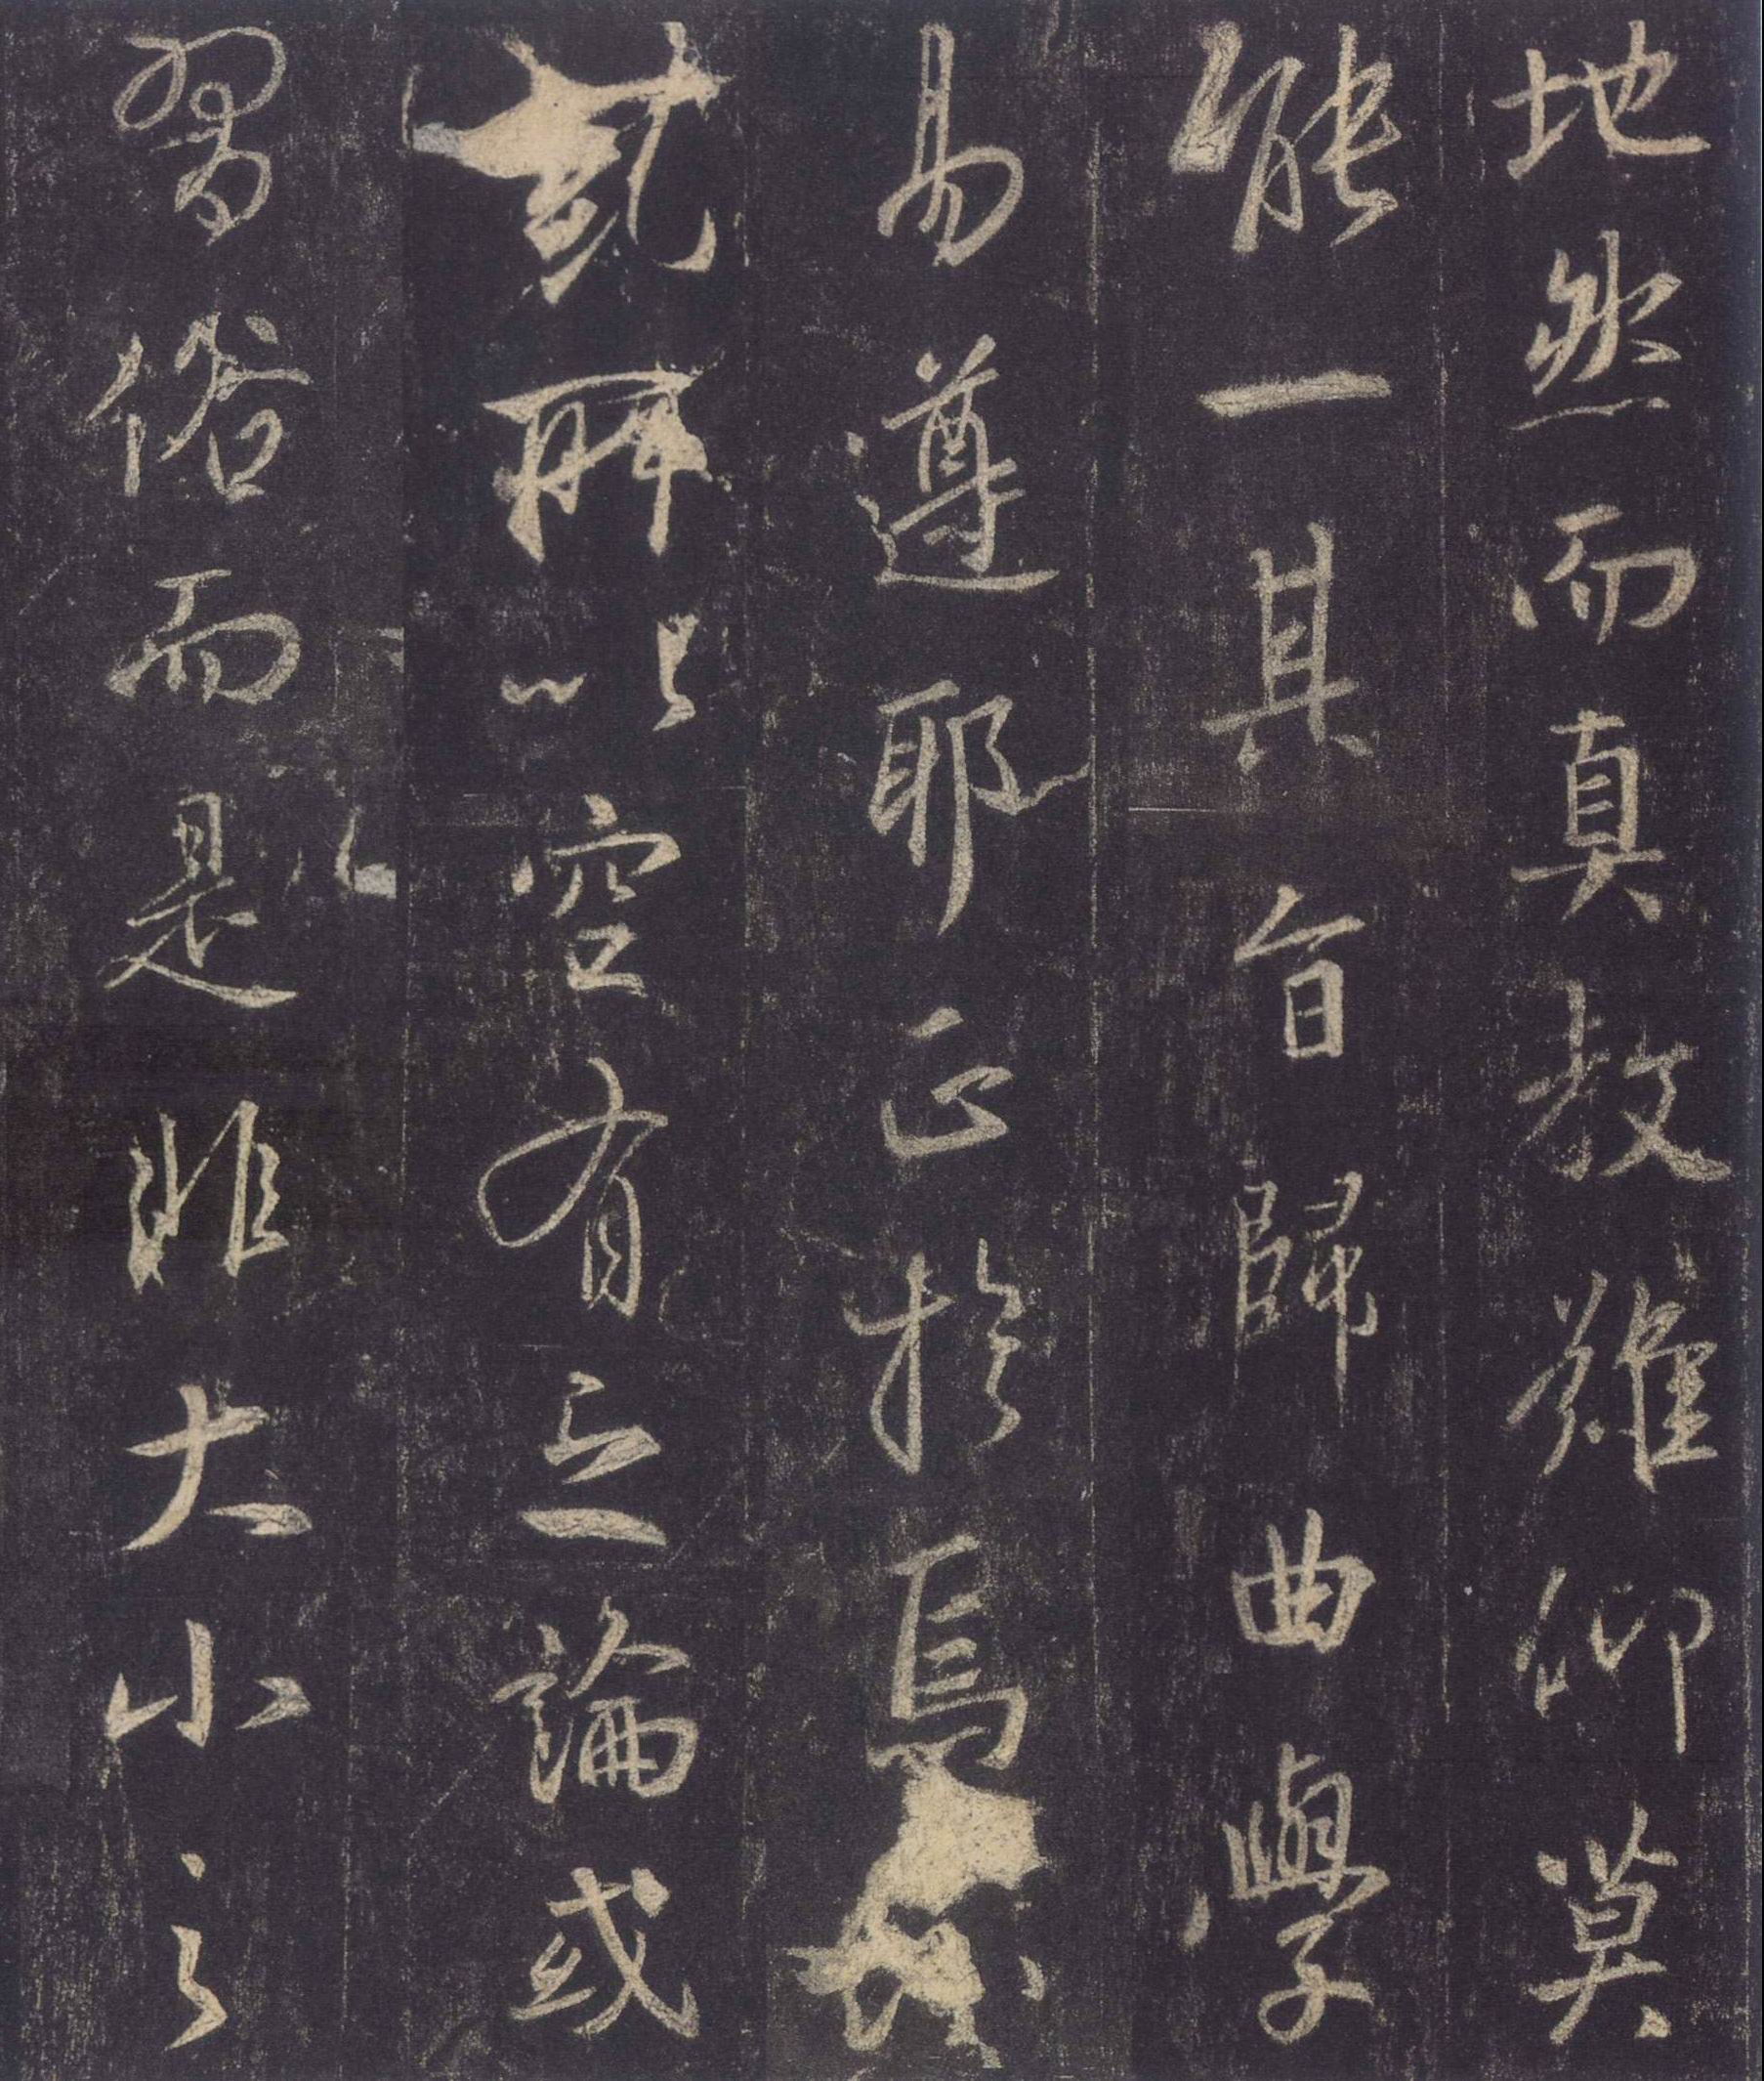 地然而真教難仰莫
能一其旨歸曲學
易遵耶正於焉紛
糺所以空有之論或
習俗而是非大小之